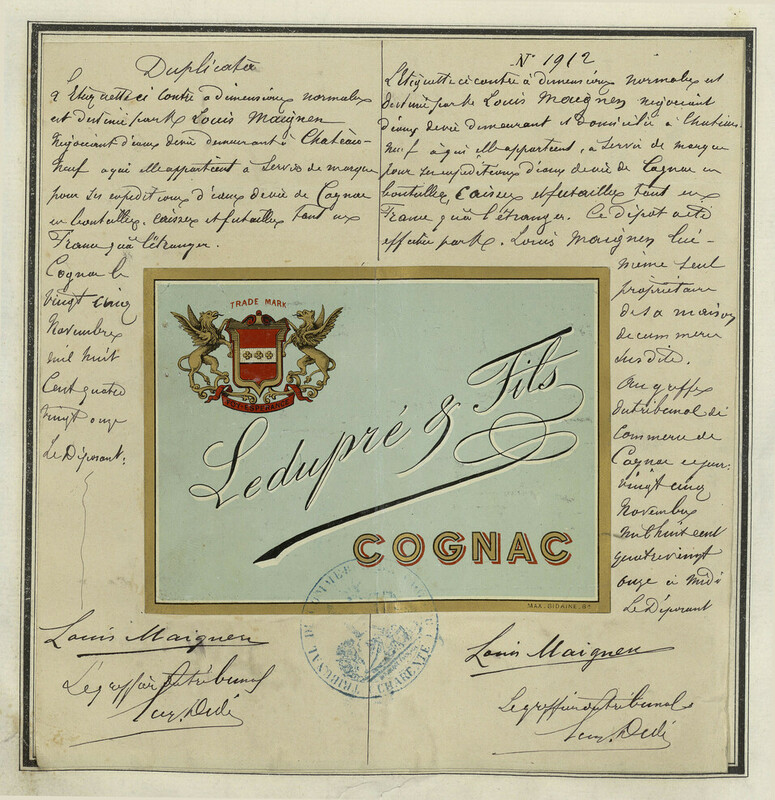 Duplicata
L'Etiquette ci contre a dimensions normales
est destinée par Mr Louis Maignen
Negociant d'eaux de vie demeurant à Chateau-
neuf a qui elle appartient à servir de marque
pour ses expeditions d'eaux de vie de Cognac
en bouteilles, caisses et futailles tant en
France qu'à l'étranger.
Cognac le
vingt cinq
Novembre
mil huit
Cent quatre
vingt onze
Le Déposant:
Louis Maignen
Le greffier du tribunal
No 1912
L'Etiquette ci contre à dimensions normales est
destinée par Mr Louis Maignen negociant
d'eaux de vie demeurant et domicilié à Chateau-
neuf à qui elle appartient, à servir de marque
pour ses expeditions d'eaux de vie de Cognac en
bouteilles caisses et futailles tant en
France qu'à l'étranger. Ce dépot a été
effectué par Mr. Louis Maignen lui-
meme seul
propriétaire
de sa maison
de commerce
susdite.
Au greffe
du tribunal de
Commerce de
Cognac ce jour:
vingt cinq
Novembre
mil huit cent
quatre vingt
onze à midi
Le Déposant
Louis Maignen
Le greffier du tribunal
TRADE MARK
FOY ESPERANCE
Ledupré & Fils
COGNAC
TRIBUNAL DE COMMERCE
CHARENTE